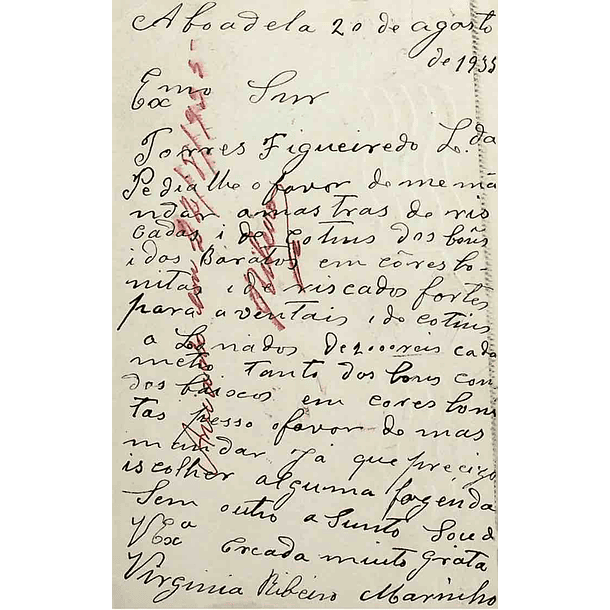 Aboadela 20 de agosto
de 1935
Exmo Snr
Torres Figueiredo L.da
Pedialhe o favor de me mã
ndar amastras de ris
cadas i de Cotins dos bõns
i dos Baratos em côres bo-
nitas i de riscados fortes
para aventais i de cotins
a Lonados de 2000 reis cada
metro tanto dos bons con
dos em cores boni
tas pesso o favor de mas
mandar Já que precizo
iscolher alguma fazenda
Sem outro a Sunto Sou d
V Exa Creada muito grata
Virginia Ribeiro Marinho
Ribeiro